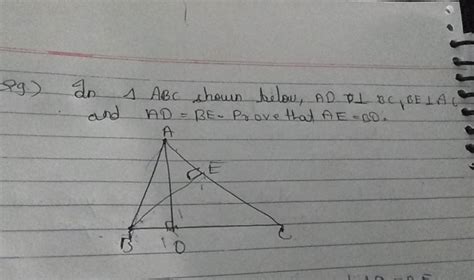 eg.) In △ ABC shown below, AD ⊥ BC, BE ⊥ AC
and AD = BE. Prove that AE = BD.
A
E
B
D
C